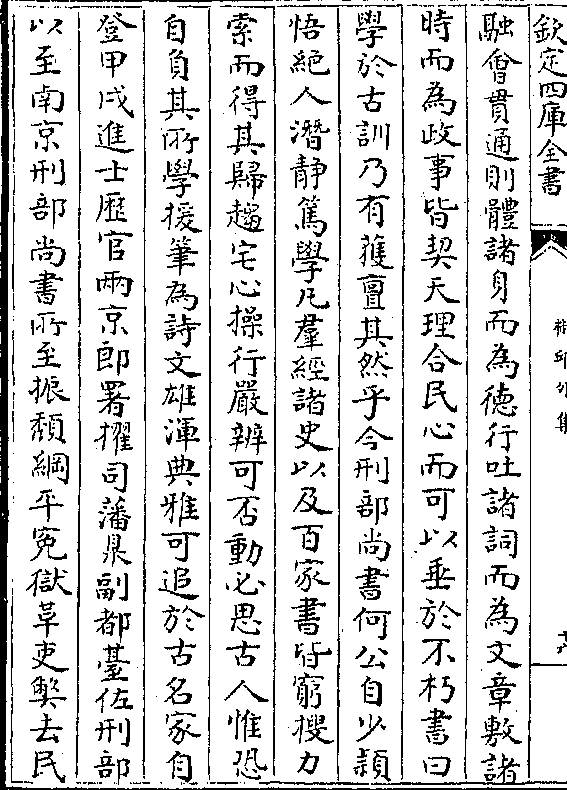 欽定四庫全書
椒邱外集
融會貫通則體諸身而為德行吐諸詞而為文章敷諸
時而為政事皆契天理合民心而可以垂於不朽書曰
學於古訓乃有獲亶其然乎今刑部尚書何公自少穎
悟絕人潛静篤學凡羣經諸史以及百家書皆窮搜力
索而得其歸趨宅心操行嚴辨可否動必思古人惟恐
自負其所學援筆為詩文雄渾典雅可追於古名家自
登甲戌進士歴官兩京郎署擢司藩臬副都臺佐刑部
以至南京刑部尚書所至振頽綱平寃獄革吏弊去民